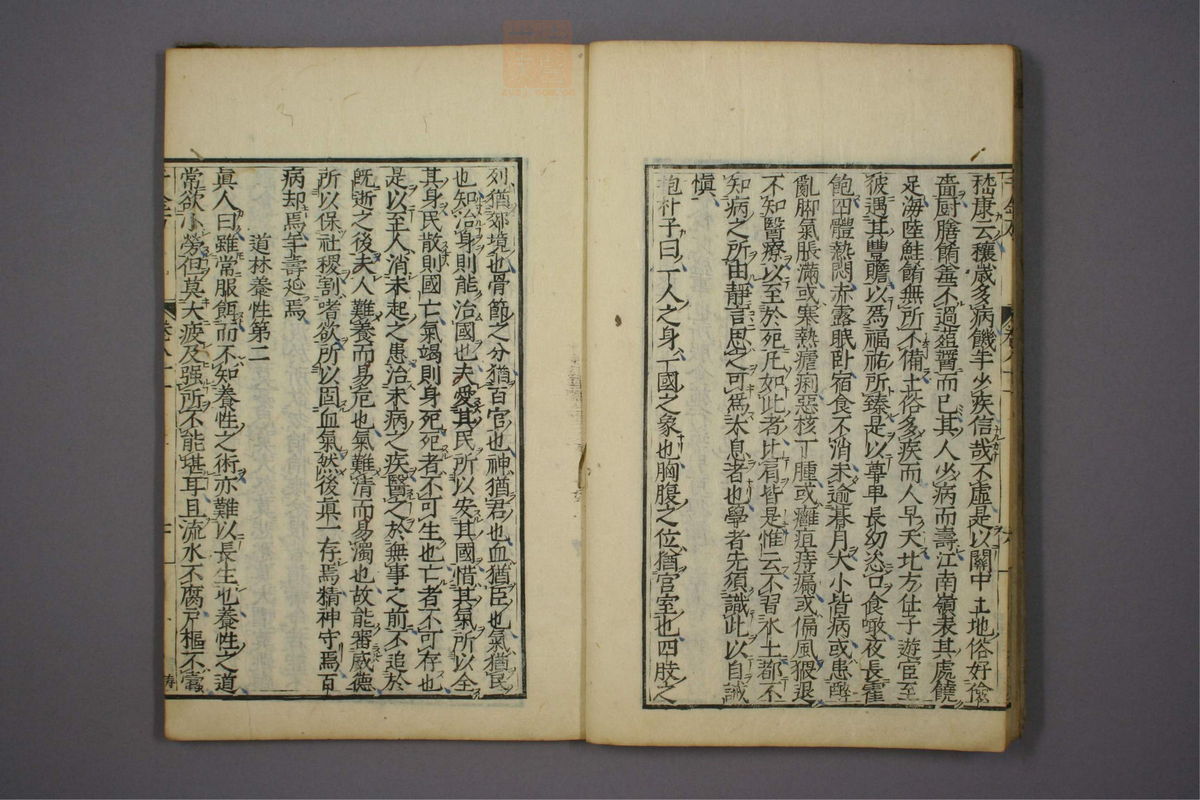 嵇康云穰歲多病饑年少疾信哉不虛是以關中土地俗好儉
嗇厨膳餚羞不過葅醬而已其人少病而壽江南嶺表其處饒
足海陸鮭餚無所不備土俗多疾而人早夭北方仕子遊宦至
彼遇其豐贍以爲福祐所臻是以尊卑長幼恣口食噉夜長霍
飽四體熱悶赤露眠臥宿食不消未逾朞月大小皆病或患
亂脚氣脹滿或寒熱瘧痢惡核丁腫或癰疽痔漏或偏風猥退
不知醫療以至於死凡如此者比肩皆是惟云不習水土都不
知病之所由靜言思之可爲太息者也學者先須識此以自誡
愼
抱朴子曰一人之身一國之象也胸腹之位猶宮室也四肢之
列猶郊境也骨節之分猶百官也神猶君也血猶臣也氣猶民
也知治身則能治國也夫愛其民所以安其國惜其氣所以全
其身民散則國亡氣竭則身死死者不可生也亡者不可存也
是以至人消未起之患治未病之疾醫之於無事之前不追於
旣逝之後夫人難養而易危也氣難清而易濁也故能審威德
所以保社稷割嗜欲所以固血氣然後眞一存焉精神守焉百
病却焉年壽延焉
道林養性第二
眞人曰雖常服餌而不知養性之術亦難以長生也養性之道
常欲小勞但莫大疲及强所不能堪耳且流水不腐戸樞不蠹